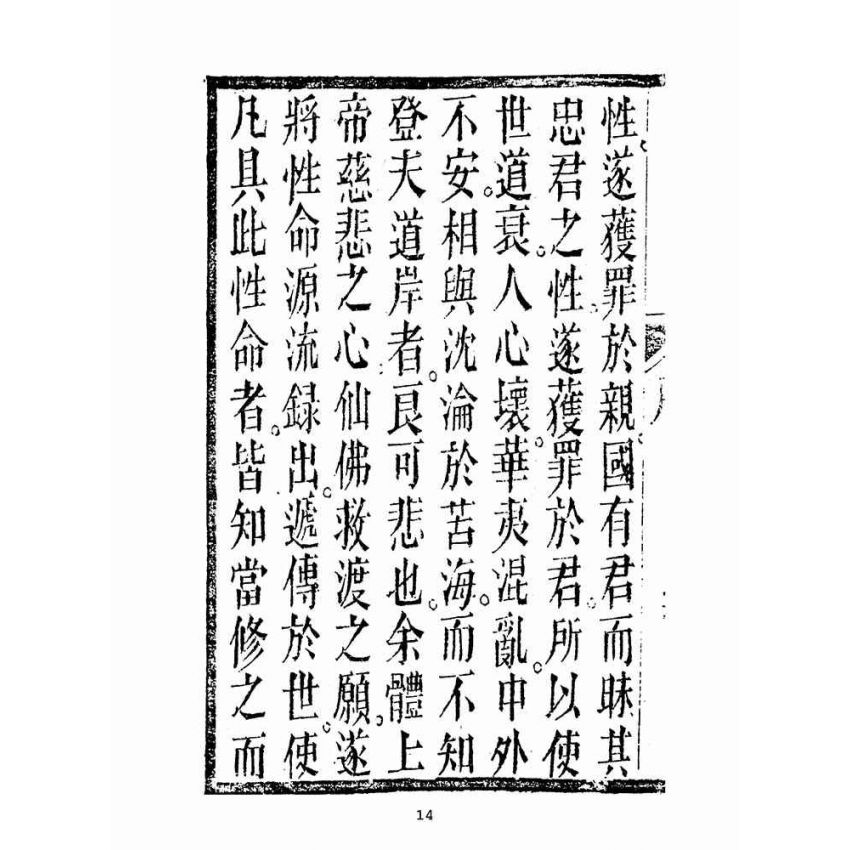 性遂獲罪於親國有君而昧其
忠君之性遂獲罪於君所以使
世道衰。人心壞。華夷混亂。中外
不安。相與沈淪於苦海。而不知
登夫道岸者。良可悲也。余體上
帝慈悲之心仙佛救渡之願。遂
將性命源流録出。遞傳於世。使
凡具此性命者。皆知當修之而
14